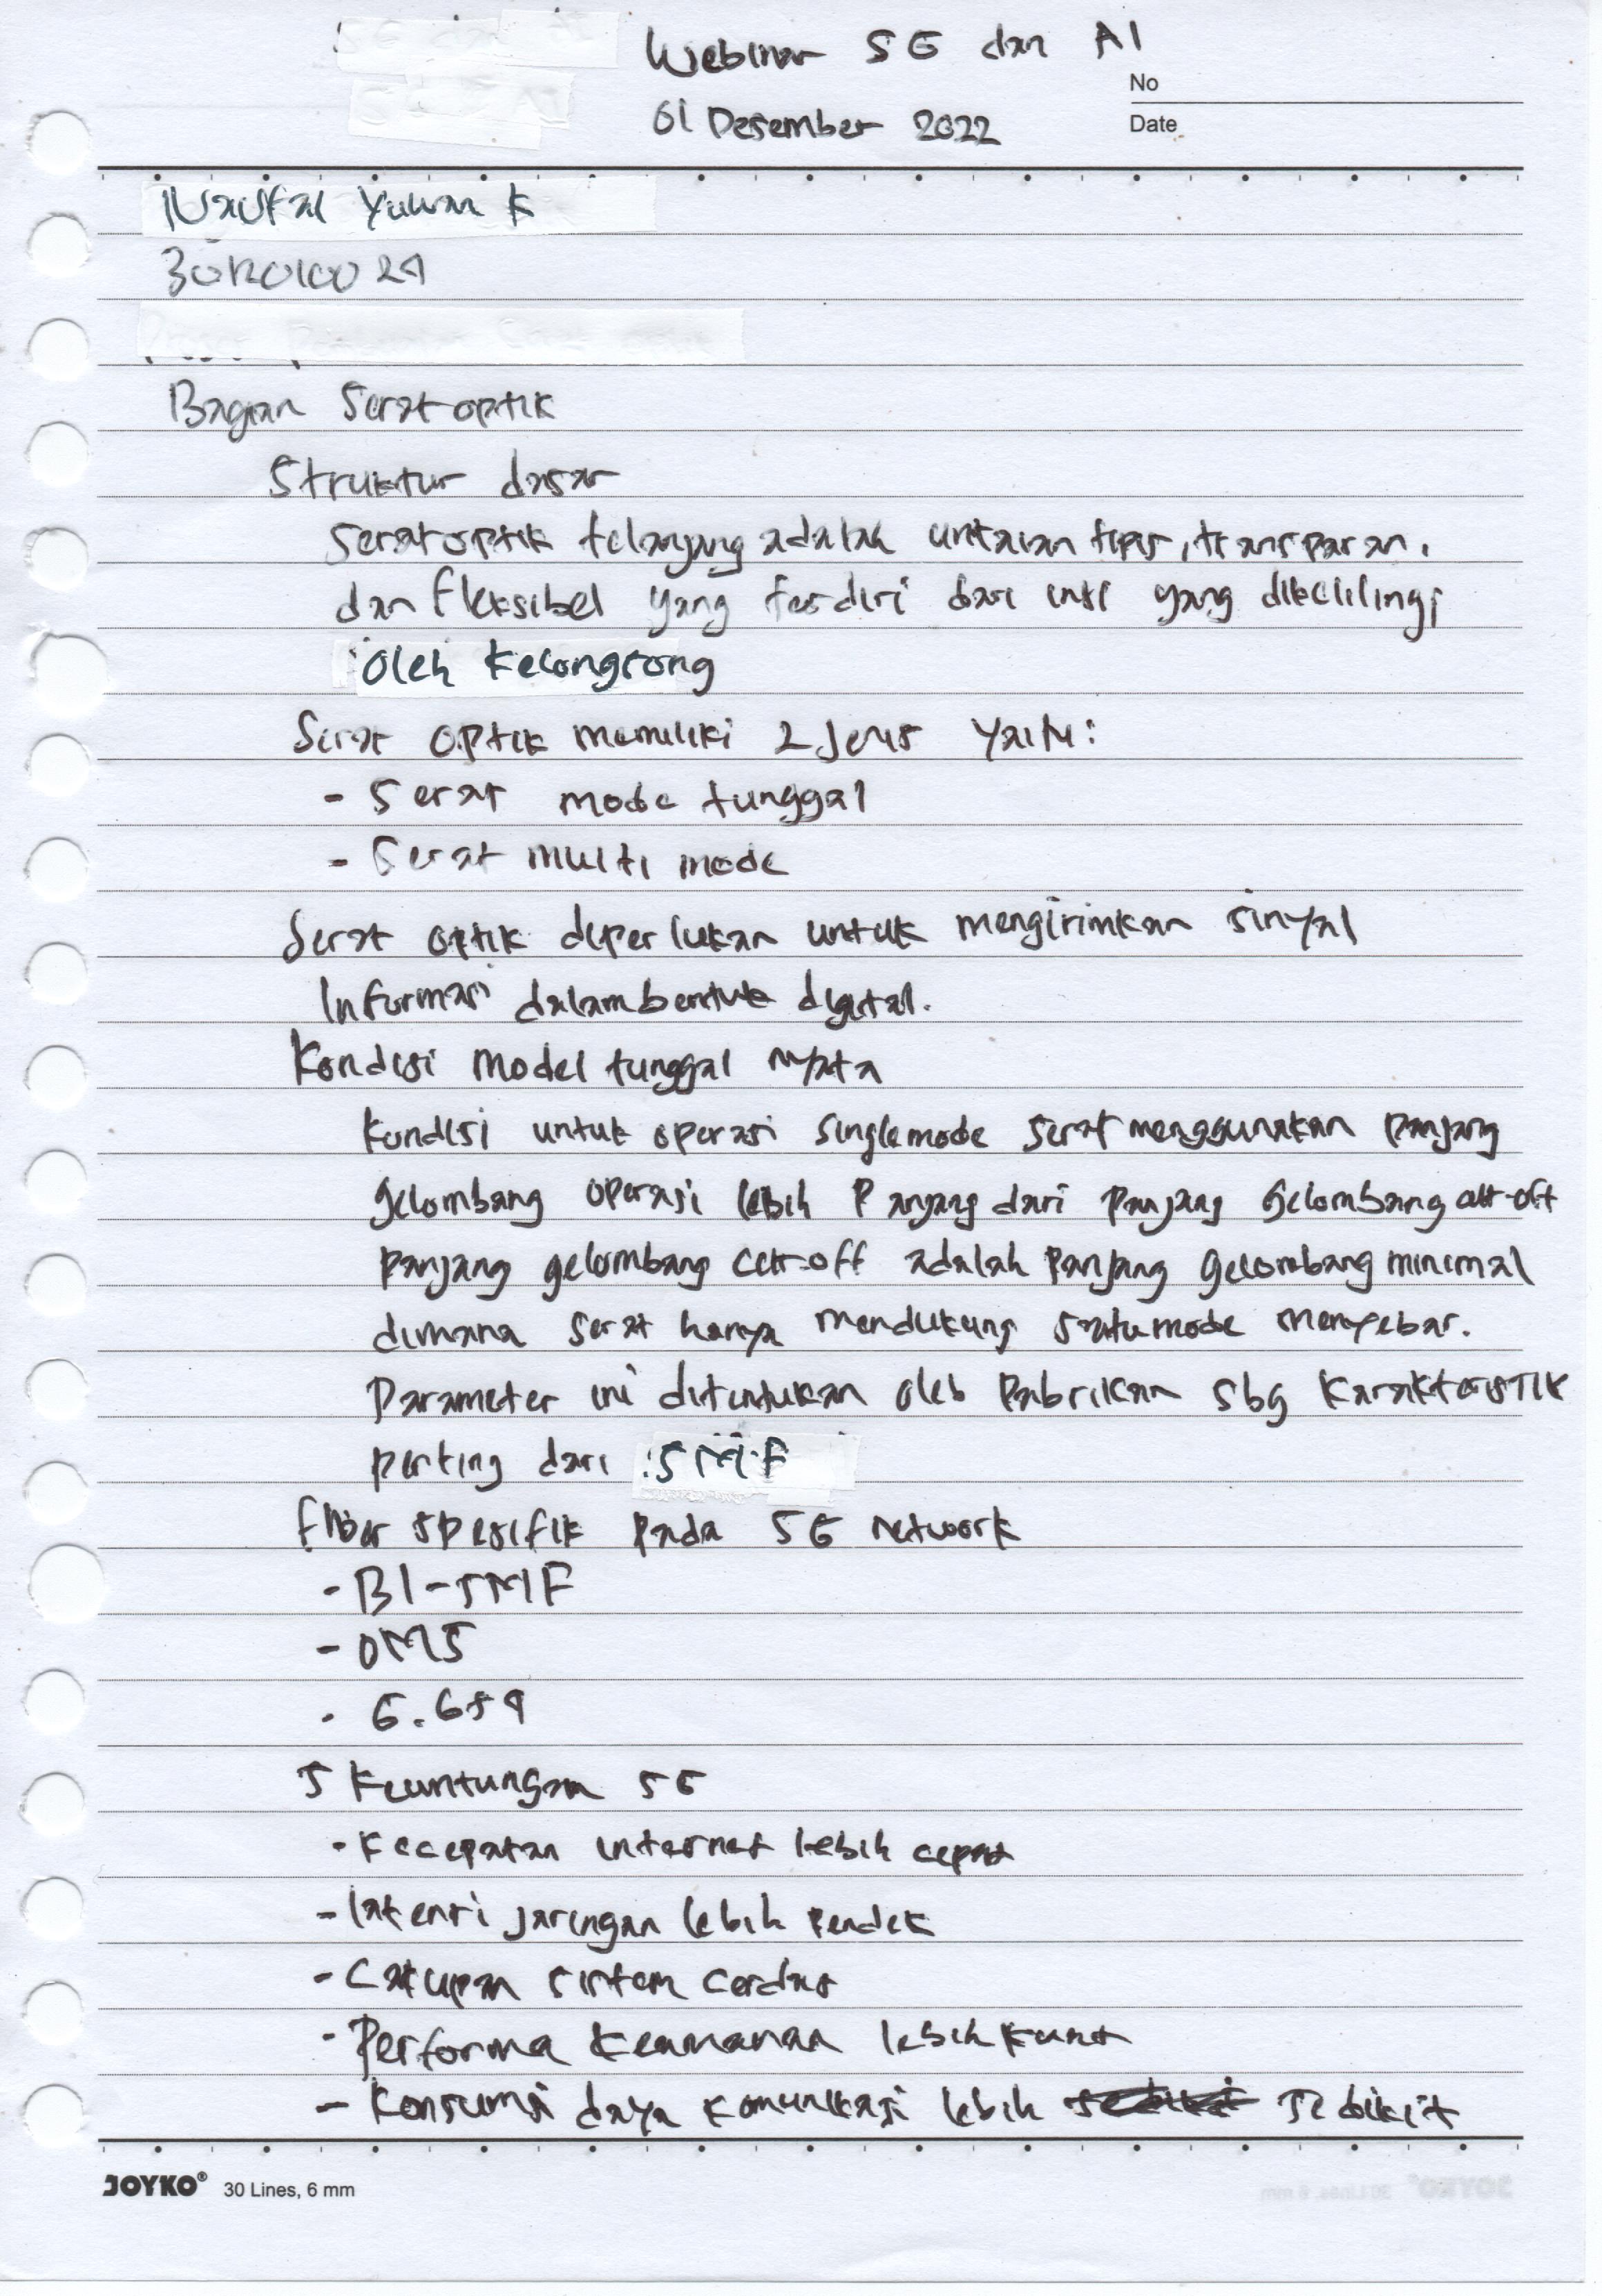 Webinar 5G dan AI
No
01 Desember 2022
Date
Naufal Yuwan K
Bagian Serat optik
Struktur dasar
Serat optik telanjang adalah untaian tipis, transparan,
dan fleksibel yang terdiri dari inti yang dikelilingi
Oleh Kelongsong
Serat optik memiliki 2 jenis yaitu:
- Serat mode tunggal
- Serat multi mode
Serat optik diperlukan untuk mengirimkan sinyal
Informasi dalam bentuk digital.
Kondisi Model tunggal nyata
Kondisi untuk operasi singlemode serat menggunakan panjang
gelombang operasi lebih Panjang dari panjang gelombang cut-off
panjang gelombang cut-off adalah panjang gelombang minimal
dimana serat hanya mendukung satu mode menyebar.
Parameter ini ditentukan oleh Pabrikan sbg karakteristik
penting dari SMF
Fiber spesifik pada 5G network
- BI-SMF
- OM5
- G.654
5 Keuntungan 5G
- Kecepatan internet lebih cepat
- latensi jaringan lebih pendek
- Cakupan sistem cerdas
- Performa Keamanan lebih kuat
- Konsumsi daya komunikasi lebih sedikit
JOYKO® 30 Lines, 6 mm